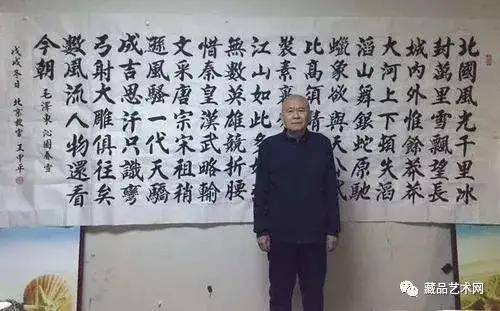 北國風光千里冰
封萬里雪飄望長
城內外惟餘莽莽
大河上下頓失滔
滔山舞銀蛇原馳
蠟象欲與天公
比高須晴
裝素裹
江山如此多
無數英雄競折腰
惜秦皇漢武略輸
文采唐宗宋祖稍
遜風騷一代天驕
成吉思汗只識彎
弓射大雕俱往矣
數風流人物還看
今朝 毛澤東沁園春雪
戊戌冬日 北京 王中平
藏品艺术网